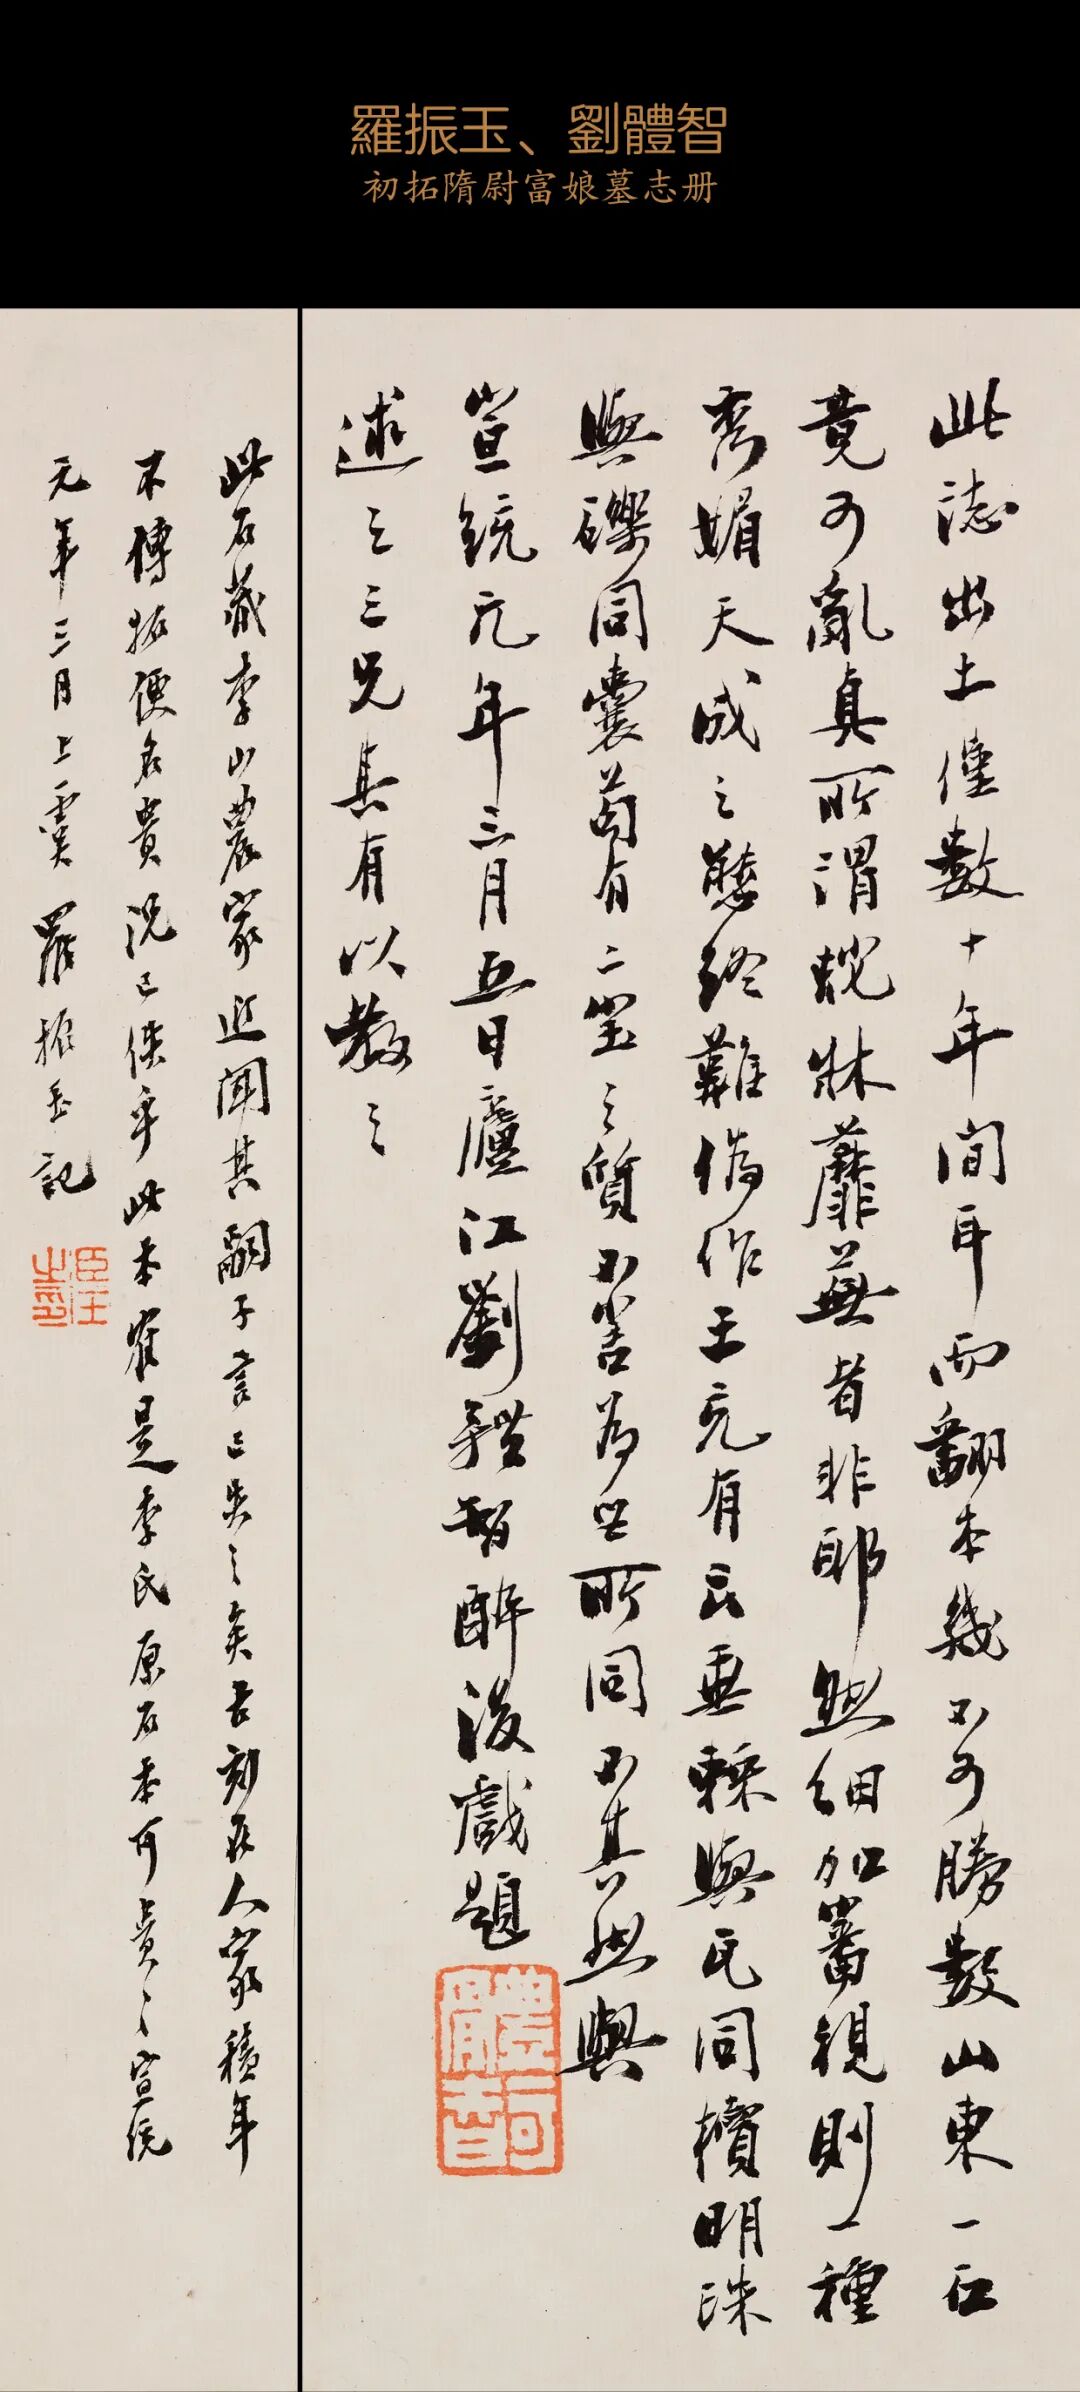 羅振玉、劉體智
初拓隋尉富娘墓志册
此誌出土僅數十年間耳而翻本幾不可勝數山東一石
竟可亂真所謂牀蘼蕪者非耶然細加審視則一種
秀媚天成之態終難偽作王充有云垂棘與瓦同櫝明珠
與礫同囊苟有二寶之質不害為世所同不其然與
宣統元年三月五日廬江劉體智酔後戲題
述之三兄其有以教之
此石藏李山農家近聞其嗣子言已失之矣古刻在人家積年
不傳拓便名貴況已佚乎此本確是李氏原石本可貴可貴宣統
元年三月上虞羅振玉記